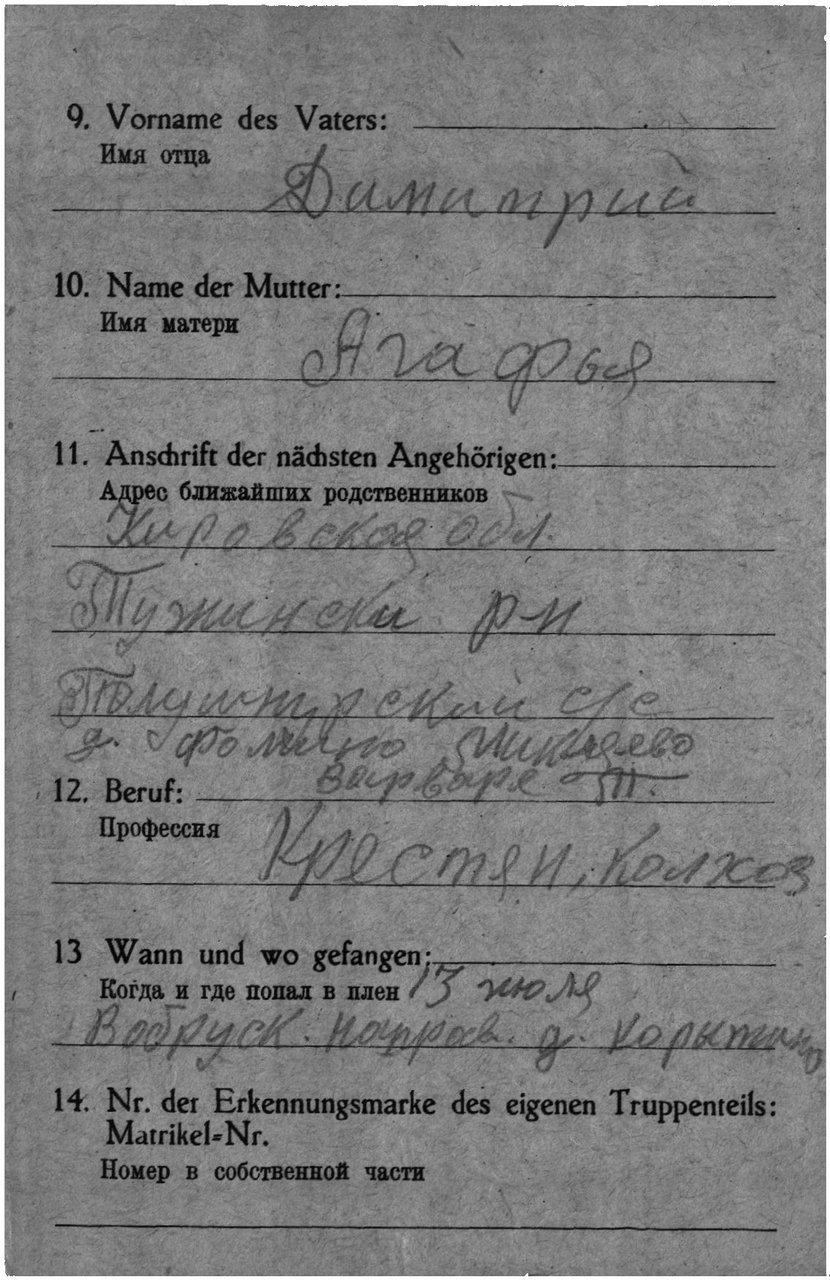 9. Vorname des Vaters:
Имя отца
Димитрий
10. Name der Mutter:
Имя матери
Агафья
11. Anschrift der nächsten Angehörigen:
Адрес ближайших родственников
Кировская обл.
Тужински р-н
с/с
д. Фомино
Варваре
12. Beruf:
Профессия
Крестян, колхоз
13 Wann und wo gefangen:
Когда и где попал в плен 13 июля
Вобруск. направ. д. Корытино
14. Nr. der Erkennungsmarke des eigenen Truppenteils:
Matrikel-Nr.
Номер в собственной части